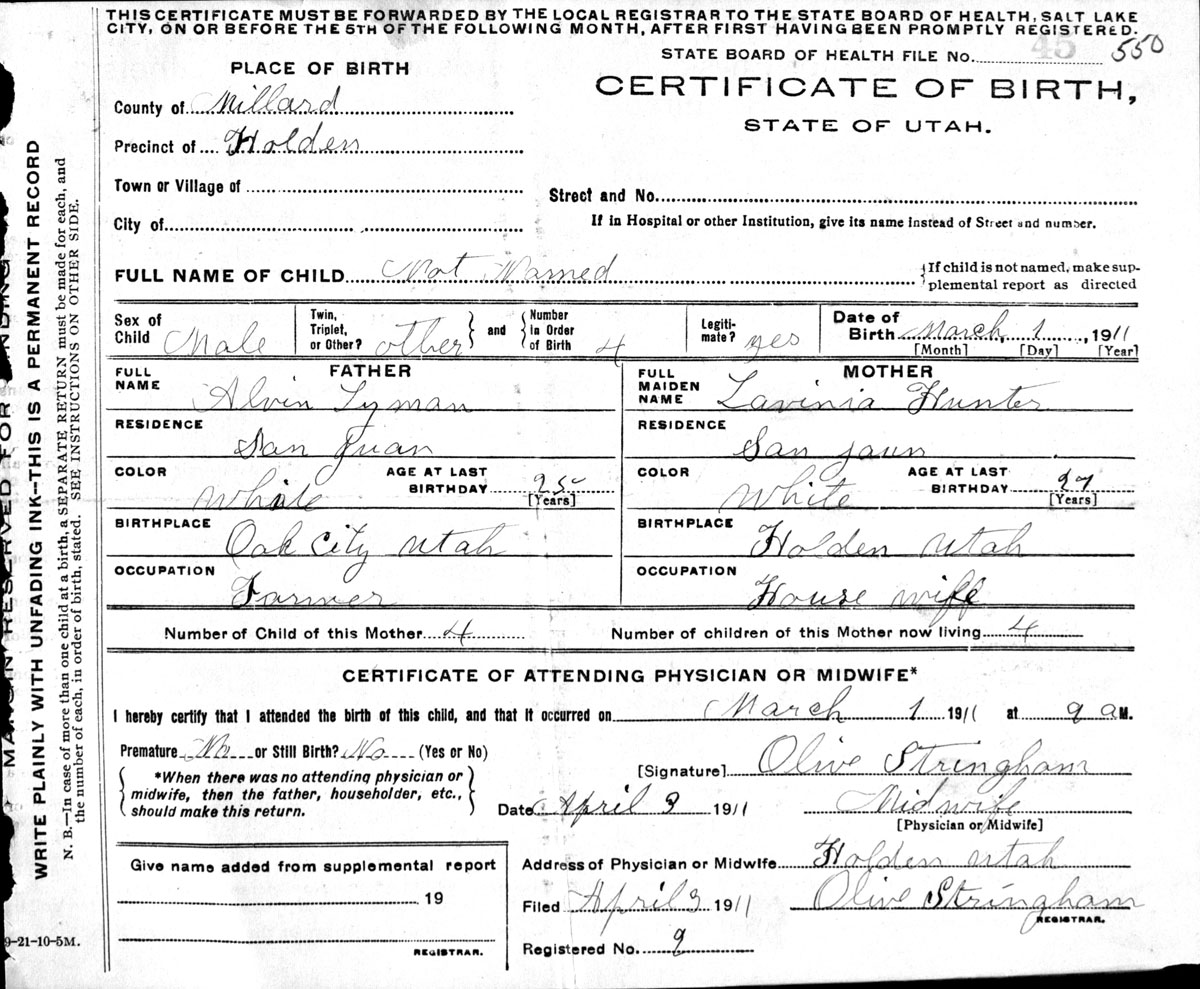 THIS CERTIFICATE MUST BE FORWARDED BY THE LOCAL REGISTRAR TO THE STATE BOARD OF HEALTH, SALT LAKE
CITY, ON OR BEFORE THE 5TH OF THE FOLLOWING MONTH, AFTER FIRST HAVING BEEN PROMPTLY REGISTERED.
STATE BOARD OF HEALTH FILE No. 45 550
PLACE OF BIRTH
CERTIFICATE OF BIRTH,
STATE OF UTAH.
County of Millard
Precinct of Holden
Town or Village of
Street and No.
City of
If in Hospital or other Institution, give its name instead of Street and number.
FULL NAME OF CHILD Not Named
If child is not named, make sup-
plemental report as directed
Sex of Child Male
Twin, Triplet, or Other? other and Number in Order of Birth 4
Legiti-mate? yes
Date of Birth March, 1, 1911
[Month] [Day] [Year]
FATHER
FULL NAME Alvin Lyman
RESIDENCE San Juan
COLOR White AGE AT LAST BIRTHDAY 25 [Years]
BIRTHPLACE Oak City Utah
OCCUPATION Farmer
MOTHER
FULL MAIDEN NAME Lavinia Hunter
RESIDENCE San jaun
COLOR White AGE AT LAST BIRTHDAY 27 [Years]
BIRTHPLACE Holden Utah
OCCUPATION House wiff
Number of Child of this Mother 4 Number of children of this Mother now living 4
CERTIFICATE OF ATTENDING PHYSICIAN OR MIDWIFE*
I hereby certify that I attended the birth of this child, and that it occurred on March 1 1911 at 9 a M.
Premature No or Still Birth? No (Yes or No)
*When there was no attending physician or
midwife, then the father, householder, etc.,
should make this return.
[Signature] Olive Stringham
Date April 3 1911 Midwife
[Physician or Midwife]
Give name added from supplemental report
19
REGISTRAR.
Address of Physician or Midwife Holden Utah
Filed April 3 1911 Olive Stringham
REGISTRAR.
Registered No. 9
MARGIN RESERVED FOR BINDING
WRITE PLAINLY WITH UNFADING INK—THIS IS A PERMANENT RECORD
N. B.—In case of more than one child at a birth, a SEPARATE RETURN must be made for each, and
the number of each, in order of birth, stated. SEE INSTRUCTIONS ON OTHER SIDE.
9-21-10-5M.